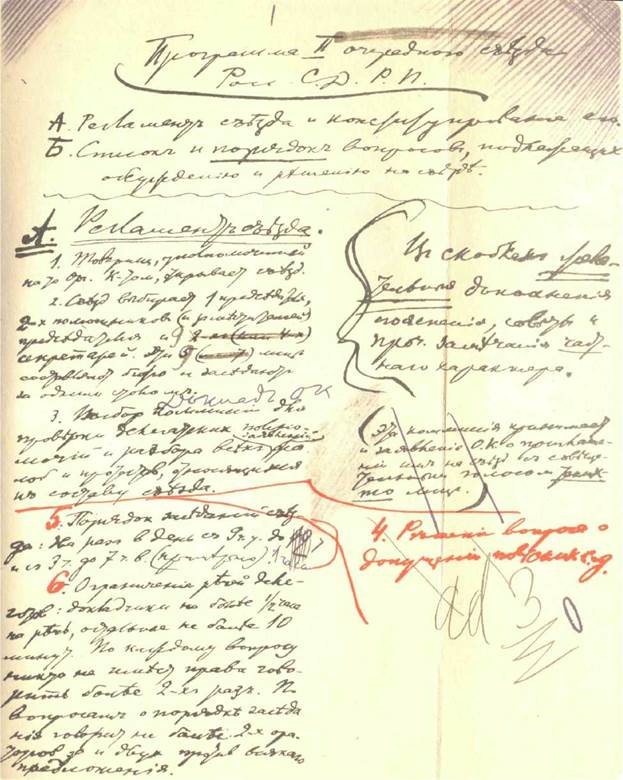 Программа II очередного съѣзда
Росс. С.Д.Р.П.
А. Регламентъ съѣзда и конституированіе его.
Б. Списокъ и порядокъ вопросовъ, подлежащихъ
обсужденію и рѣшенію на съѣздѣ.
А. Регламентъ съѣзда.
1. Товарищ, уполномоченный
на то Орг. К-том, открывает съѣзд.
2. Съѣзд выбирает 1 предсѣдателя,
2-х помощников (и замѣстителей)
предсѣдателя и 9
секретарей. Эти 9 лиц
составляют бюро и засѣдают
за одним столом.
Доклад ОК
3. Выбор комиссии для
провѣрки делегатских полно-
мочий и разбора всѣх жа-
лоб и протестов, относящихся
к составу съѣзда.
5. Порядок засѣданий съѣз-
да: два раза в день с 9 ч. до 1
и с 3 ч. до 7 ч. (примѣрно)
6. Ограничение рѣчей деле-
гатов: докладчики не болѣе 1/2 часа
на рѣчь, остальные не болѣе 10
минут. По каждому вопросу
никто не имѣет права гово-
рить болѣе 2-х раз. По
вопросам о порядкѣ засѣда-
ния говорят не болѣе 2-х ора-
торов за и двух против всякого
предложения.
В скобках
дополнения
пояснения, совѣты и
проч. замѣчания част-
наго характера.
(Эта комиссия принимает
и заявление О.К. о приглаше-
нии им на съѣзд с совѣща-
тельным голосом
лиц.)
4. Рѣшение вопроса о
допущении польских с.д.
ad 3